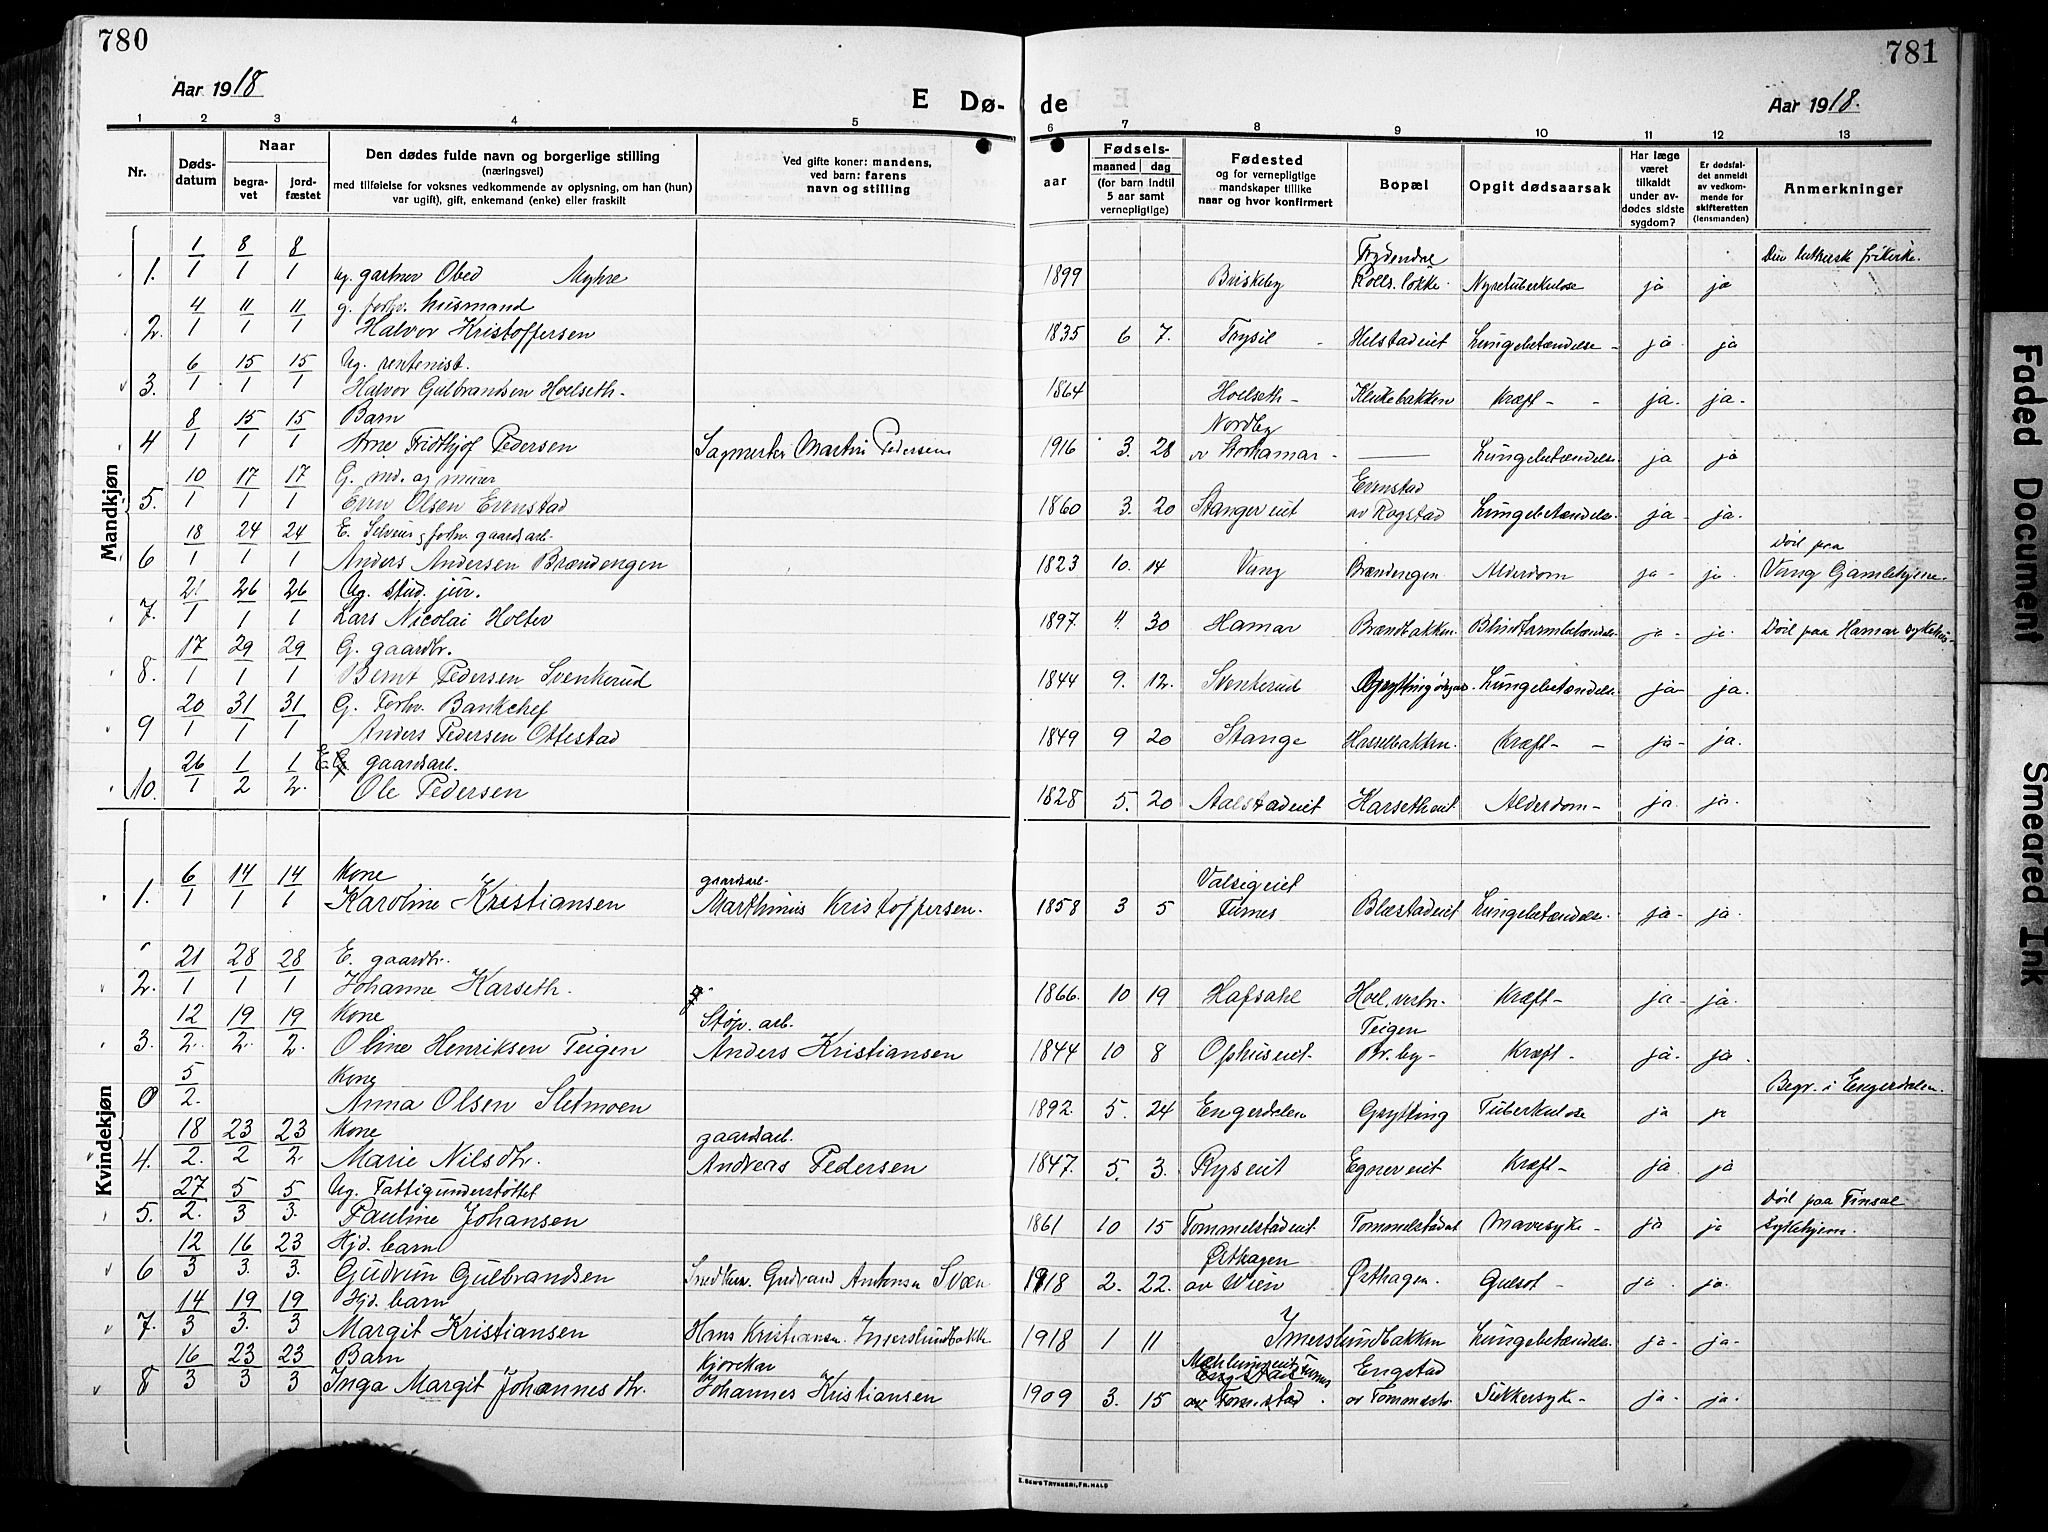 780
781
Aar 1918
E Dø-
de
Aar 1918.
1 2 3 4 5 6 7 8 9 10 11 12 13
Nr.
Døds-
datum
Naar
begra-
vet
jord-
fæstet
Den dødes fulde navn og borgerlige stilling
(næringsvei)
med tilføielse for voksnes vedkommende av oplysning, om han (hun)
var ugift), gift, enkemand (enke) eller fraskilt
Ved gifte koner: mandens,
ved barn: farens
navn og stilling
aar
Fødsels-
maaned dag
(for barn indtil
5 aar samt
vernepligtige)
Fødested
og for vernepligtige
mandskaper tillike
naar og hvor konfirmert
Bopæl
Opgit dødsaarsak
Har læge
været
tilkaldt
under av-
dødes sidste
sygdom?
Er dødsfal-
det anmeldt
av vedkom-
mende for
skifteretten
(lensmanden)
Anmerkninger
Mandkjøn
1 8 8 Frydendal Den luthersk frikirke.
1. 1 1 1 ug. gartner Obed Myhre 1899 Briskeby Rolls.løkke Nyretuberkulose ja ja
4 11 11 g. forhv. husmand
2. 1 1 1 Halvor Kristoffersen 1835 6 7. Trysil Helstadeiet Lungebetændelse ja ja
6 15 15 Ug. rentenist.
3. 1 1 1 Halvor Gulbrandsen Hoelseth 1864 Hoelseth Klukebakken Kræft ja ja
8 15 15 Barn Nordby
4 1 1 1 Arne Fridthjof Pedersen Sagmester Martin Pedersen 1916 3. 28 av Storhamar Lungebetændelse ja ja
10 17 17 G. md. og murer Evenstad
5. 1 1 1 Even Olsen Evenstad 1860 3. 20 Stangereiet av Rogstad Lungebetændelse ja ja
18 24 24 E. Selveier, forhv. gaardsarb. Död paa
6 1 1 1 Anders Andersen Brændengen 1823 10. 14 Vang Brændengen Alderdom ja ja Vang Gamlehjem.
21 26 26 Ug. stud. jur.
7. 1 1 1 Lars Nicolai Holter 1897 4. 30 Hamar Brændbakken Blindtarmbetændelse ja ja Död paa Hamar sykehus
17 29 29 G. gaardbr.
8. 1 1 1 Bernt Pedersen Svenkerud 1844 9. 12. Svenkerud Lungebetændelse ja ja.
20 31 31 G. Forhv. Bankchef
9 1 1 1 Anders Pedersen Ottestad 1849 9 20 Stange Hasselbakken Kræft ja ja.
26 1 1 E. gaardsarb.
10. 1 2 2. Ole Pedersen 1828 5. 20 Aalstadeiet Karsetheiet Alderdom ja ja.
Kvindekjøn
6 14 14 Kone gaardsarb. Valsigeiet
1. 1 1 1 Karoline Kristiansen Marthinus Kristoffersen. 1858 3 5 Furnes Blæstadeiet Lungebetændelse ja ja.
21 28 28 E. gaardbr.
2. 1 1 1 Johanne Karseth. 1866. 10 19 Hafsahl Hoel, vestre Kræft ja ja.
12 19 19 Kone Støp. arb. Teigen
3. 2. 2. 2. Oline Henriksen Teigen Anders Kristiansen 1844 10 8 Ophuseiet Br.by Kræft ja ja
5 Kone Begr. i Engerdalen.
0 2. Anna Olsen Sletmoen 1892. 5. 24 Engerdalen Grytting Tuberkulose ja ja
18 23 23 Kone gaardsarb.
4. 2. 2 2. Marie Nilsdtr. Andreas Pedersen 1847. 5. 3. Ryseiet Kræft ja ja
27 5 5 Ug. Fattigunderstöttet Död paa Finsal
5. 2. 3 3. Pauline Johansen 1861 10 15 Tommelstadeiet Tommelstadeiet Mavesyke ja ja sykehjem.
12 16 23 Hjd. barn Ørthagen
6 3 3. 3. Gudrun Gulbrandsen Snedker. Gudbrand Antonsen Svæn 1918 2. 22. av Wien Ørthagen. Gulsot ja ja.
14 19 19 Hjd. barn
7. 3 3. 3 Margit Kristiansen Hans Kristiansen. Imerslundbakken 1918 1 11 Imerslundbakken Lungebetændelse ja ja
16 23 23 Barn Kjørekar Mæhlumeiet Furnes Engstad
8 3 3 3 Inga Margit Johannesdtr. Johannes Kristiansen 1909 3. 15 av Tom.stad av Tommelst. Sukkersyke ja ja.
E. SEM'S TRYKKERI, FR.HALD
Faded Document
Smeared Ink